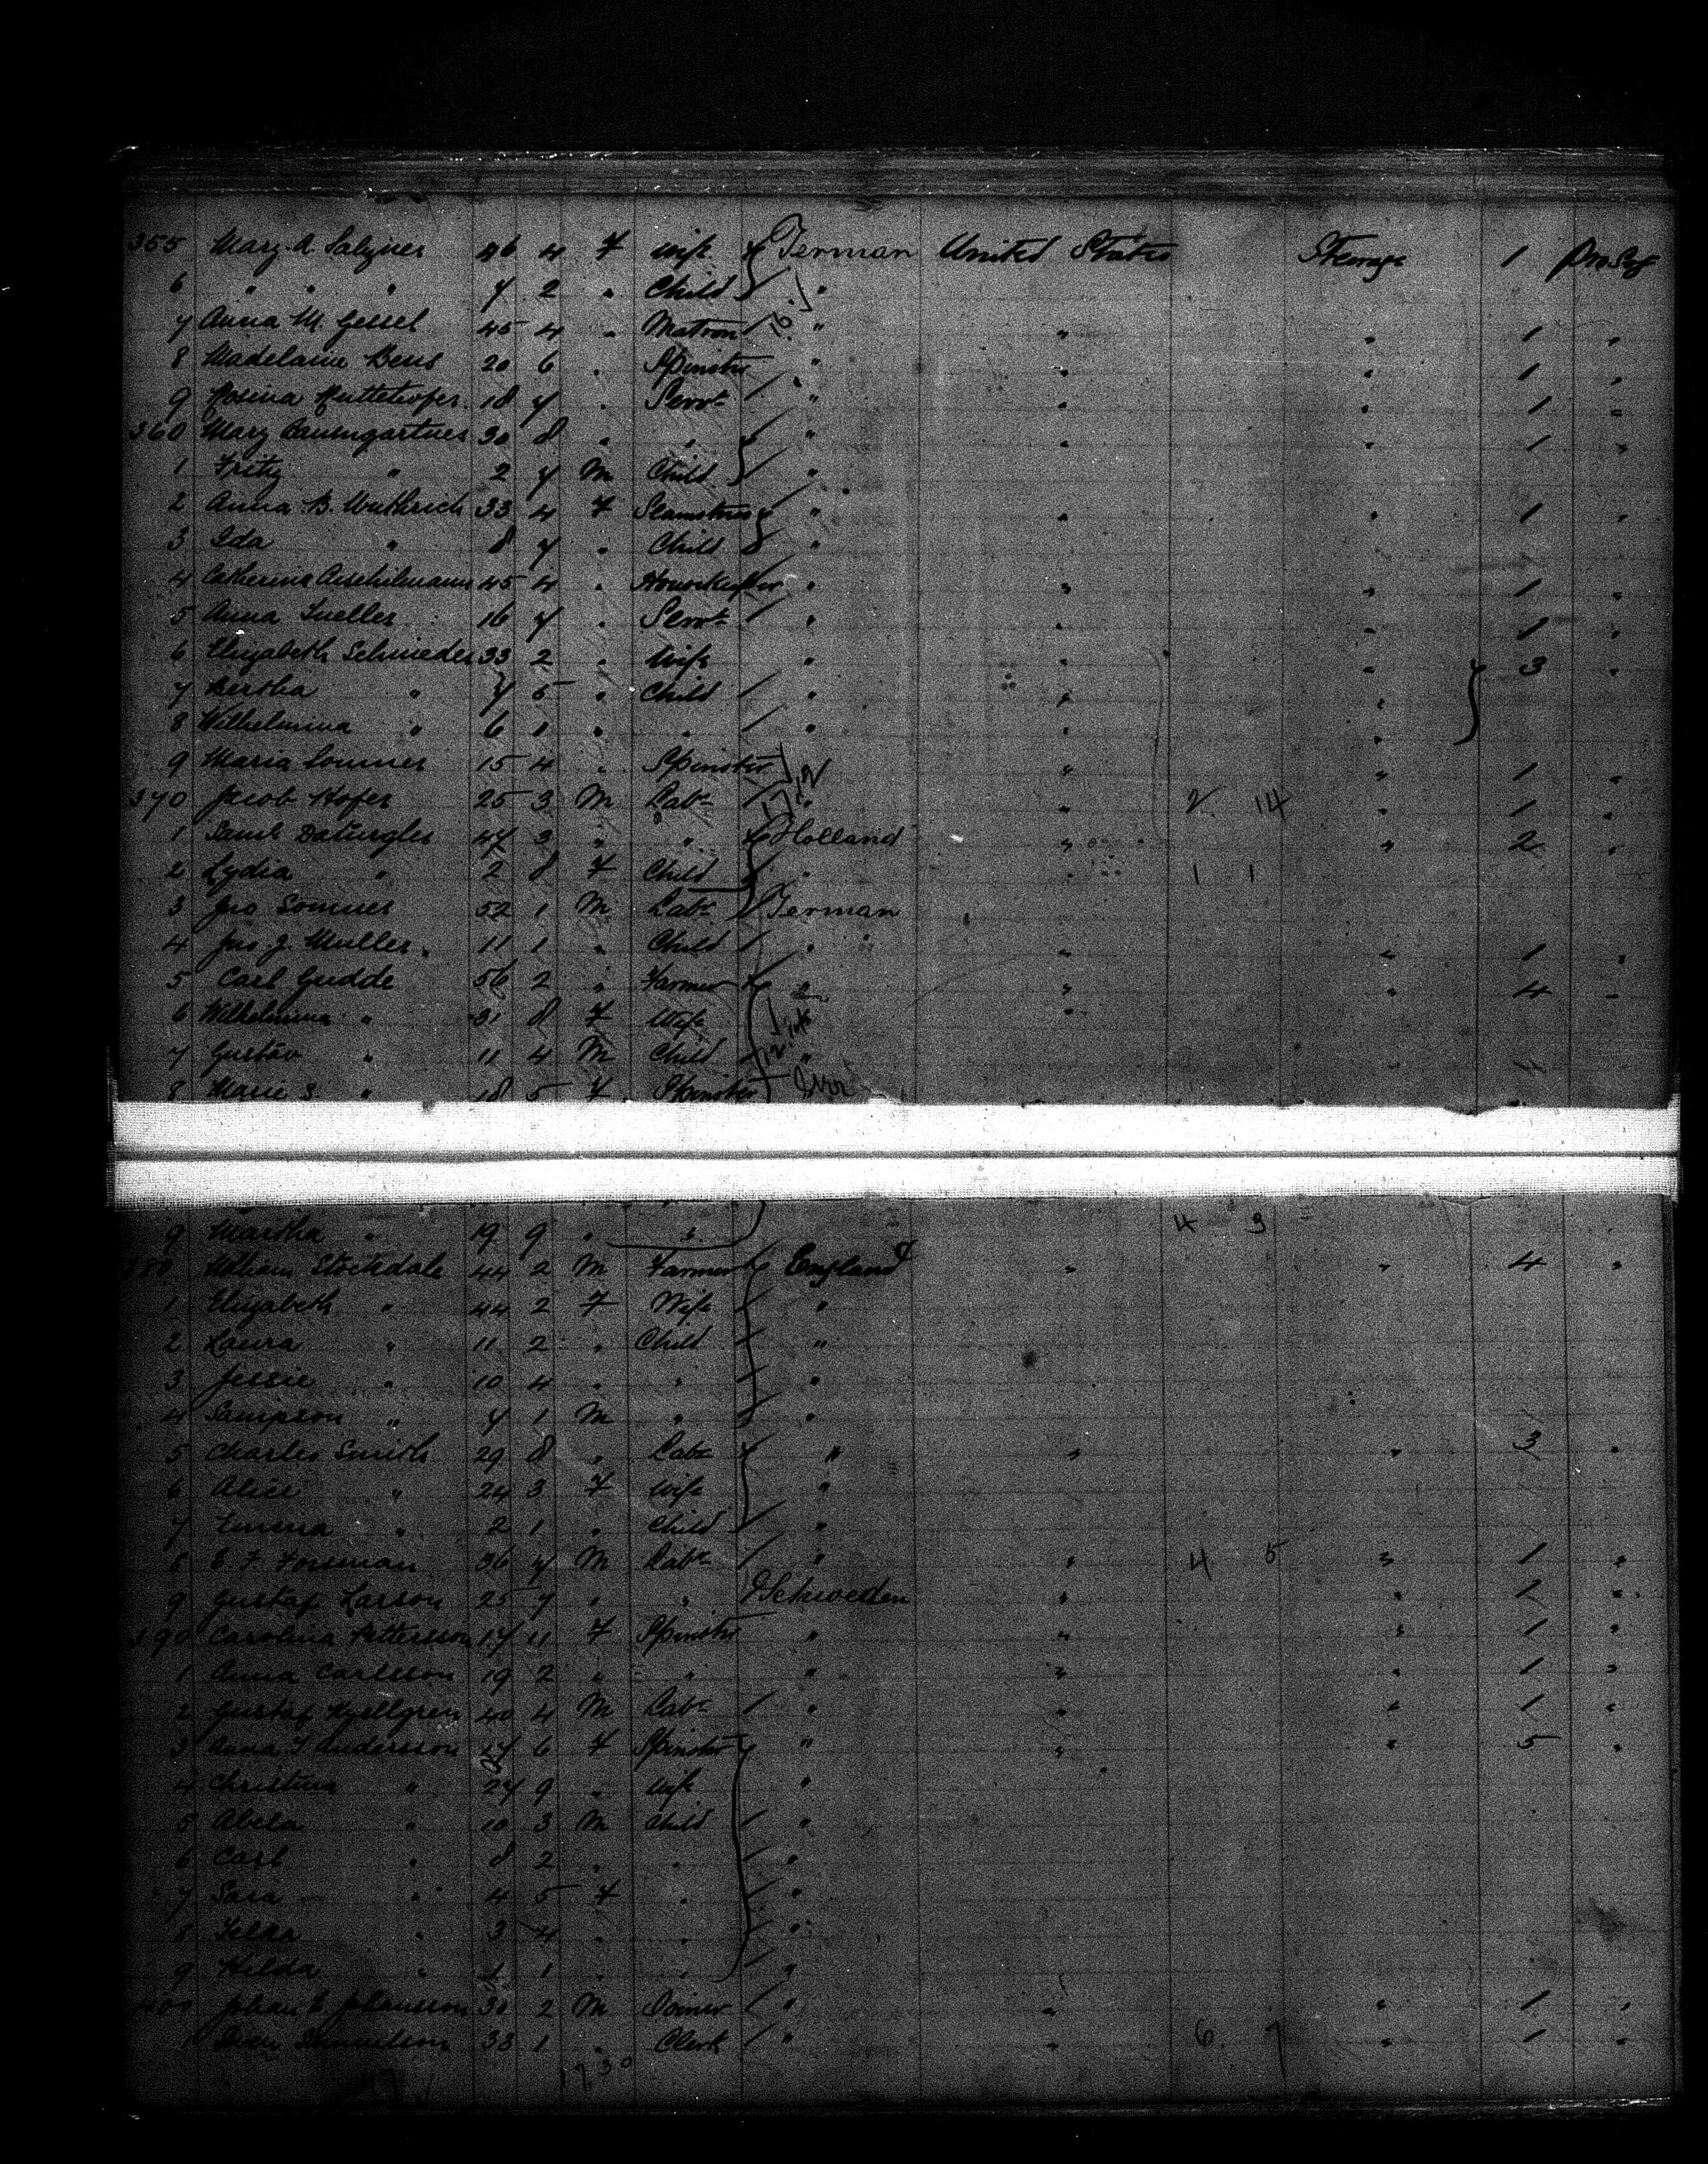 355 Mary A. Salzner 46 4 F Wife German United States Steerage 1 Pro Sey
6 " " " 7 2 " Child "
7 Anna M. Gessel 45 4 " Matron " " " 1 "
8 Madelaine Beus 20 6 " Spinster " " " 1 "
9 Rosina 18 7 " Servt " " " 1 "
360 Mary Baumgartner 30 8 " " " " " 1 "
1 Fritz " 2 7 M Child "
2 Anna B. Wuthrich 33 4 F Seamstress " " " 1 "
3 Ida " 8 7 " Child "
4 Catherina Aeschilmann 45 4 " Housekeeper " " " 1 "
5 Anna Sueller 16 7 " Servt " " " 1 "
6 Elizabeth Schmieder 33 2 " Wife " " 3 "
7 Bertha " 7 5 " Child " " "
8 Wilhelmina " 6 1 " " " " "
9 Maria Sommer 15 4 " Spinster " " 1 "
370 Jacob Hofer 25 3 M Labr " " 2 14 " 1 "
1 Saml 47 3 " " Holland " " 2 "
2 Lydia " 2 8 F Child " " 1 1
3 Jno Sommer 52 1 M Labr German
4 Jno. J. Muller 11 1 " Child " " " 1 "
5 Carl Gudde 56 2 " Farmer " " " 4 "
6 Wilhelmina " 31 8 F Wife "
7 Gustav " 11 4 M Child "
8 Marie S. " 18 5 F Spinster
9 Martha " 19 9 " " 4 3
380 William Stockdale 44 2 M Farmer England " " 4 "
1 Elizabeth " 44 2 F Wife "
2 Laura " 11 2 " Child "
3 Jessie " 10 4 " " "
4 Sampson " 7 1 M " "
5 Charles Smith 29 8 " Labr " " " 3 "
6 Alice " 24 3 F Wife "
7 Emma " 2 1 " Child "
8 E. F. Forsman 36 7 M Labr " " 4 5 " 1 "
9 Gustaf Larson 25 7 " " Schweden " " 1 "
390 Carolina Pettersson 17 11 F Spinster " " " 1 "
1 Anna Carlsson 19 2 " " " " " 1 "
2 Gustaf Kjellgren 40 4 M Labr " " " 1 "
3 Anna T. Andersson 17 6 F Spinster " " " 5 "
4 Christina " 27 9 " Wife "
5 Abela " 10 3 M Child "
6 Carl " 8 2 " " "
7 Sara " 4 5 F " "
8 " 3 4 " " "
9 Hilda " 1 1 " " "
400 Johan E. Johansson 30 2 M Joiner " " " 1 "
1 Samuelson 33 1 " Clerk " " 6 7 " 1 "